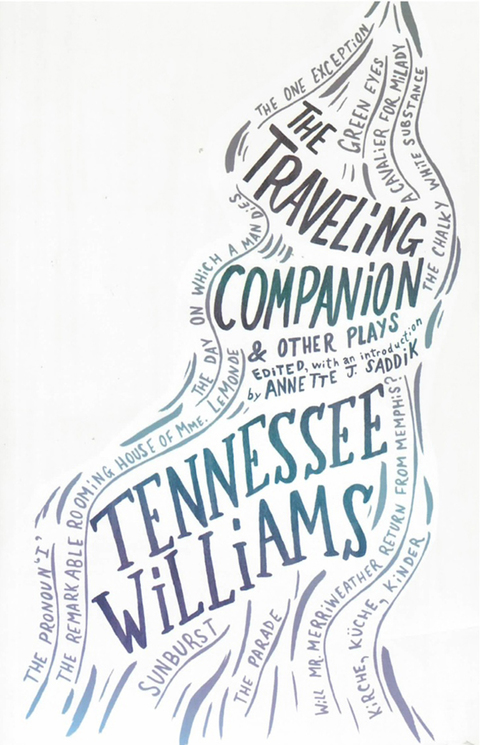 THE ONE EXCEPTION
GREEN EYES
A CAVALIER FOR MILADY
THE CHALKY WHITE SUBSTANCE
THE
TRAVELiNG
COMPANiON
& OTHER PLAYS
EDITED, with an introduction
by ANNETTE J. SADDiK
THE DAY ON WHICH A MAN DiES
THE REMARKABLE ROOMiNG HOUSE OF MME. LEMONDE
THE PRONOUN 'I'
TENNESSEE
WiLLiAMS
SUNBURST
THE PARADE
WiLL MR. MERRiWEATHER RETURN FROM MEMPHiS?
KiRCHE, KÜCHE, KiNDER